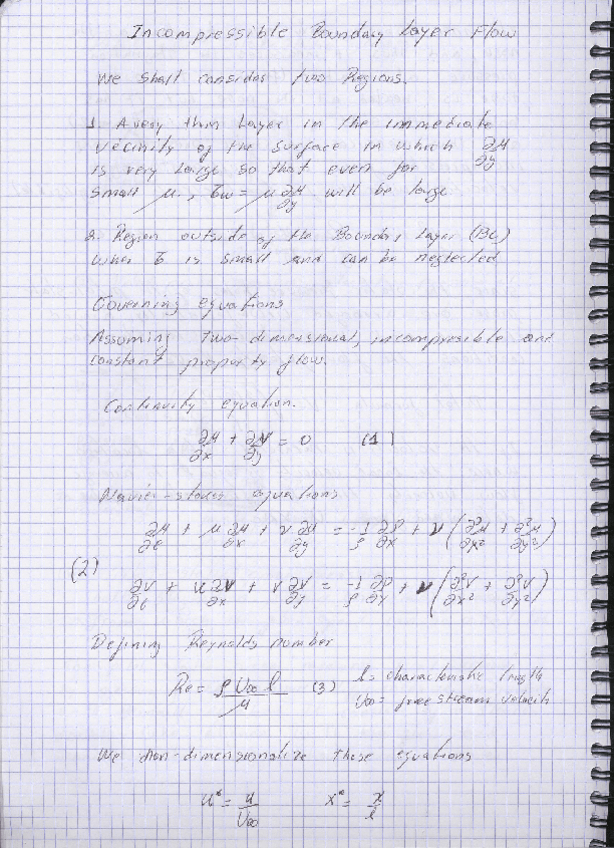 Incompressible Boundary Layer Flow
We shall consider two Regions.
1. A very thin Layer in the immediate
vecinity of the surface in which ∂u/∂y
is very large so that even for
small μ, τw = μ ∂u/∂y will be large
2. Region outside of the Boundary Layer (BL)
when τ is small and can be neglected
Governing equations
Assuming two-dimensional, incompresible and
constant property flow.
Continuity equation.
∂u/∂x + ∂v/∂y = 0 (1)
Navier-stokes equations
∂u/∂t + u ∂u/∂x + v ∂u/∂y = -1/ρ ∂p/∂x + ν(∂²u/∂x² + ∂²u/∂y²)
(2)
∂v/∂t + u ∂v/∂x + v ∂v/∂y = -1/ρ ∂p/∂y + ν(∂²v/∂x² + ∂²v/∂y²)
Defining Reynolds number
Re = ρ U∞ l/μ (3) l= characteristic length
U∞ = free stream velocity
We non-dimensionalize these equations
u* = u/U∞ x* = x/l